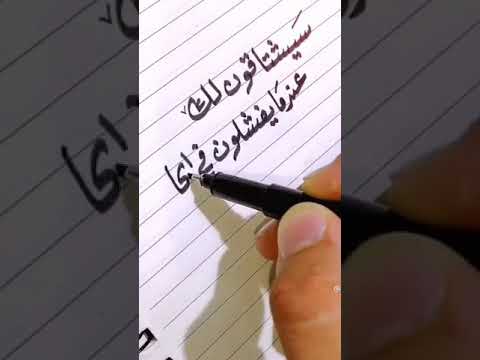 سَيشتاقون لك
عندمَا يفشلون في